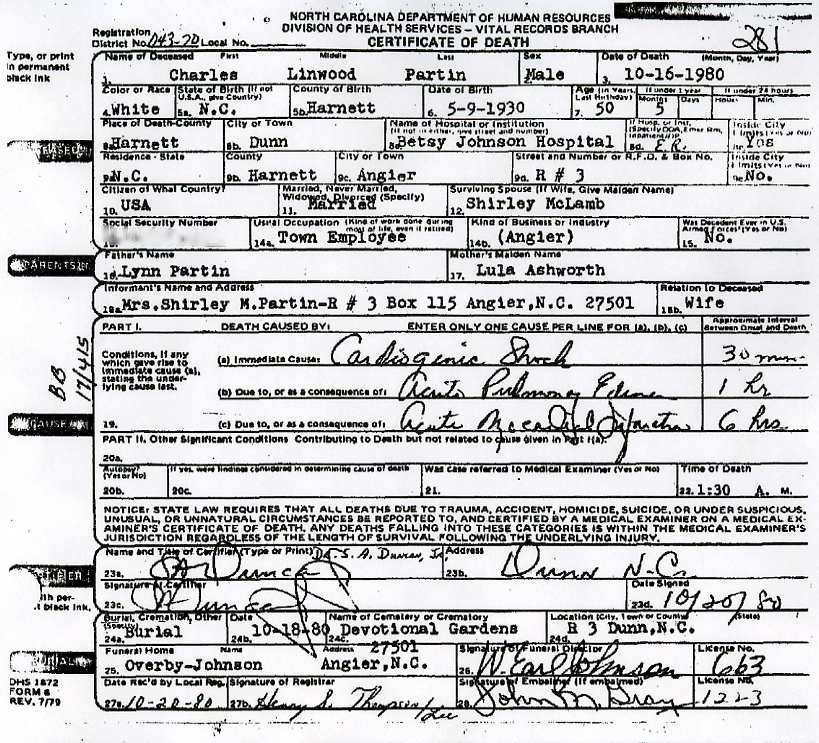 NORTH CAROLINA DEPARTMENT OF HUMAN RESOURCES
DIVISION OF HEALTH SERVICES – VITAL RECORDS BRANCH
CERTIFICATE OF DEATH
Registration District No. 043-70 Local No.
281
Type, or print in permanent black ink
Name of Deceased First Middle Last Sex Date of Death (Month, Day, Year)
1. Charles Linwood Partin 2. Male 3. 10-16-1980
Color or Race State of Birth (If not U.S.A., give Country) County of Birth Date of Birth Age (In Years, Last Birthday) If under 1 year Months Days If under 24 hours Hours Min.
4. White 5a. N.C. 5b. Harnett 6. 5-9-1930 7. 50 5
Place of Death-County City or Town Name of Hospital or Institution (If not in either, give street and number) If Hosp. or Inst. Inside City Limits (Yes or No)
8a. Harnett 8b. Dunn 8c. Betsy Johnson Hospital 8d. E.R. Yes
Residence - State County City or Town Street and Number or R.F.D. & Box No. Inside City Limits (Yes or No)
9a. N.C. 9b. Harnett 9c. Angier 9d. R # 3 9e. No.
Citizen of What Country? Married, Never Married, Widowed, Divorced (Specify) Surviving Spouse (If Wife, Give Maiden Name)
10. USA 11. Married 12. Shirley McLamb
Social Security Number Usual Occupation (Kind of work done during most of life, even if retired) Kind of Business or Industry Was Decedent Ever in U.S. Armed Forces? (Yes or No)
14a. Town Employee 14b. (Angier) 15. No.
PARENTS
Father's Name Mother's Maiden Name
16. Lynn Partin 17. Lula Ashworth
Informant's Name and Address Relation to Deceased
18a. Mrs.Shirley M.Partin-R # 3 Box 115 Angier,N.C. 27501 18b. Wife
PART I. DEATH CAUSED BY: ENTER ONLY ONE CAUSE PER LINE FOR (a), (b), (c) Approximate Interval Between Onset and Death
Conditions, if any which gave rise to immediate cause (a), stating the underlying cause last.
(a) Immediate Cause: Cardiogenic Shock 30 min
(b) Due to, or as a consequence of: Acute Pulmonary Edema 1 hr
19. (c) Due to, or as a consequence of: Acute Myocardial Infarction 6 hrs
BB
17/4/5
CAUSE
PART II. Other Significant Conditions Contributing to Death but not related to cause given in Part I(a).
20a.
Autopsy? (Yes or No) If yes, were findings considered in determining cause of death Was case referred to Medical Examiner (Yes or No) Time of Death
20b. 20c. 21. 22. 1:30 A. M.
NOTICE: STATE LAW REQUIRES THAT ALL DEATHS DUE TO TRAUMA, ACCIDENT, HOMICIDE, SUICIDE, OR UNDER SUSPICIOUS,
UNUSUAL, OR UNNATURAL CIRCUMSTANCES BE REPORTED TO, AND CERTIFIED BY A MEDICAL EXAMINER ON A MEDICAL EX-
AMINER'S CERTIFICATE OF DEATH. ANY DEATHS FALLING INTO THESE CATEGORIES IS WITHIN THE MEDICAL EXAMINER'S
JURISDICTION REGARDLESS OF THE LENGTH OF SURVIVAL FOLLOWING THE UNDERLYING INJURY.
Name and Title of Certifier (Type or Print) Dr. S. A. Duncan, Jr. Address
23a. 23b. Dunn N.C.
Signature of Certifier Date Signed
23c. 23d. 10/20/80
black ink.
Burial, Cremation, Other (Specify) Date Name of Cemetery or Crematory Location (City, Town or County) (State)
24a. Burial 24b. 10-18-80 24c. Devotional Gardens 24d. R 3 Dunn,N.C.
Funeral Home Name Address 27501 Signature of Funeral Director License No.
25. Overby-Johnson Angier,N.C. 26. W. Earl Johnson 663
BURIAL
Date Rec'd by Local Reg. Signature of Registrar Signature of Embalmer (If embalmed) License No.
27a. 10-20-80 27b. Henry S. Thompson 28. John M. Gray 1223
DHS 1872
FORM 6
REV. 7/79